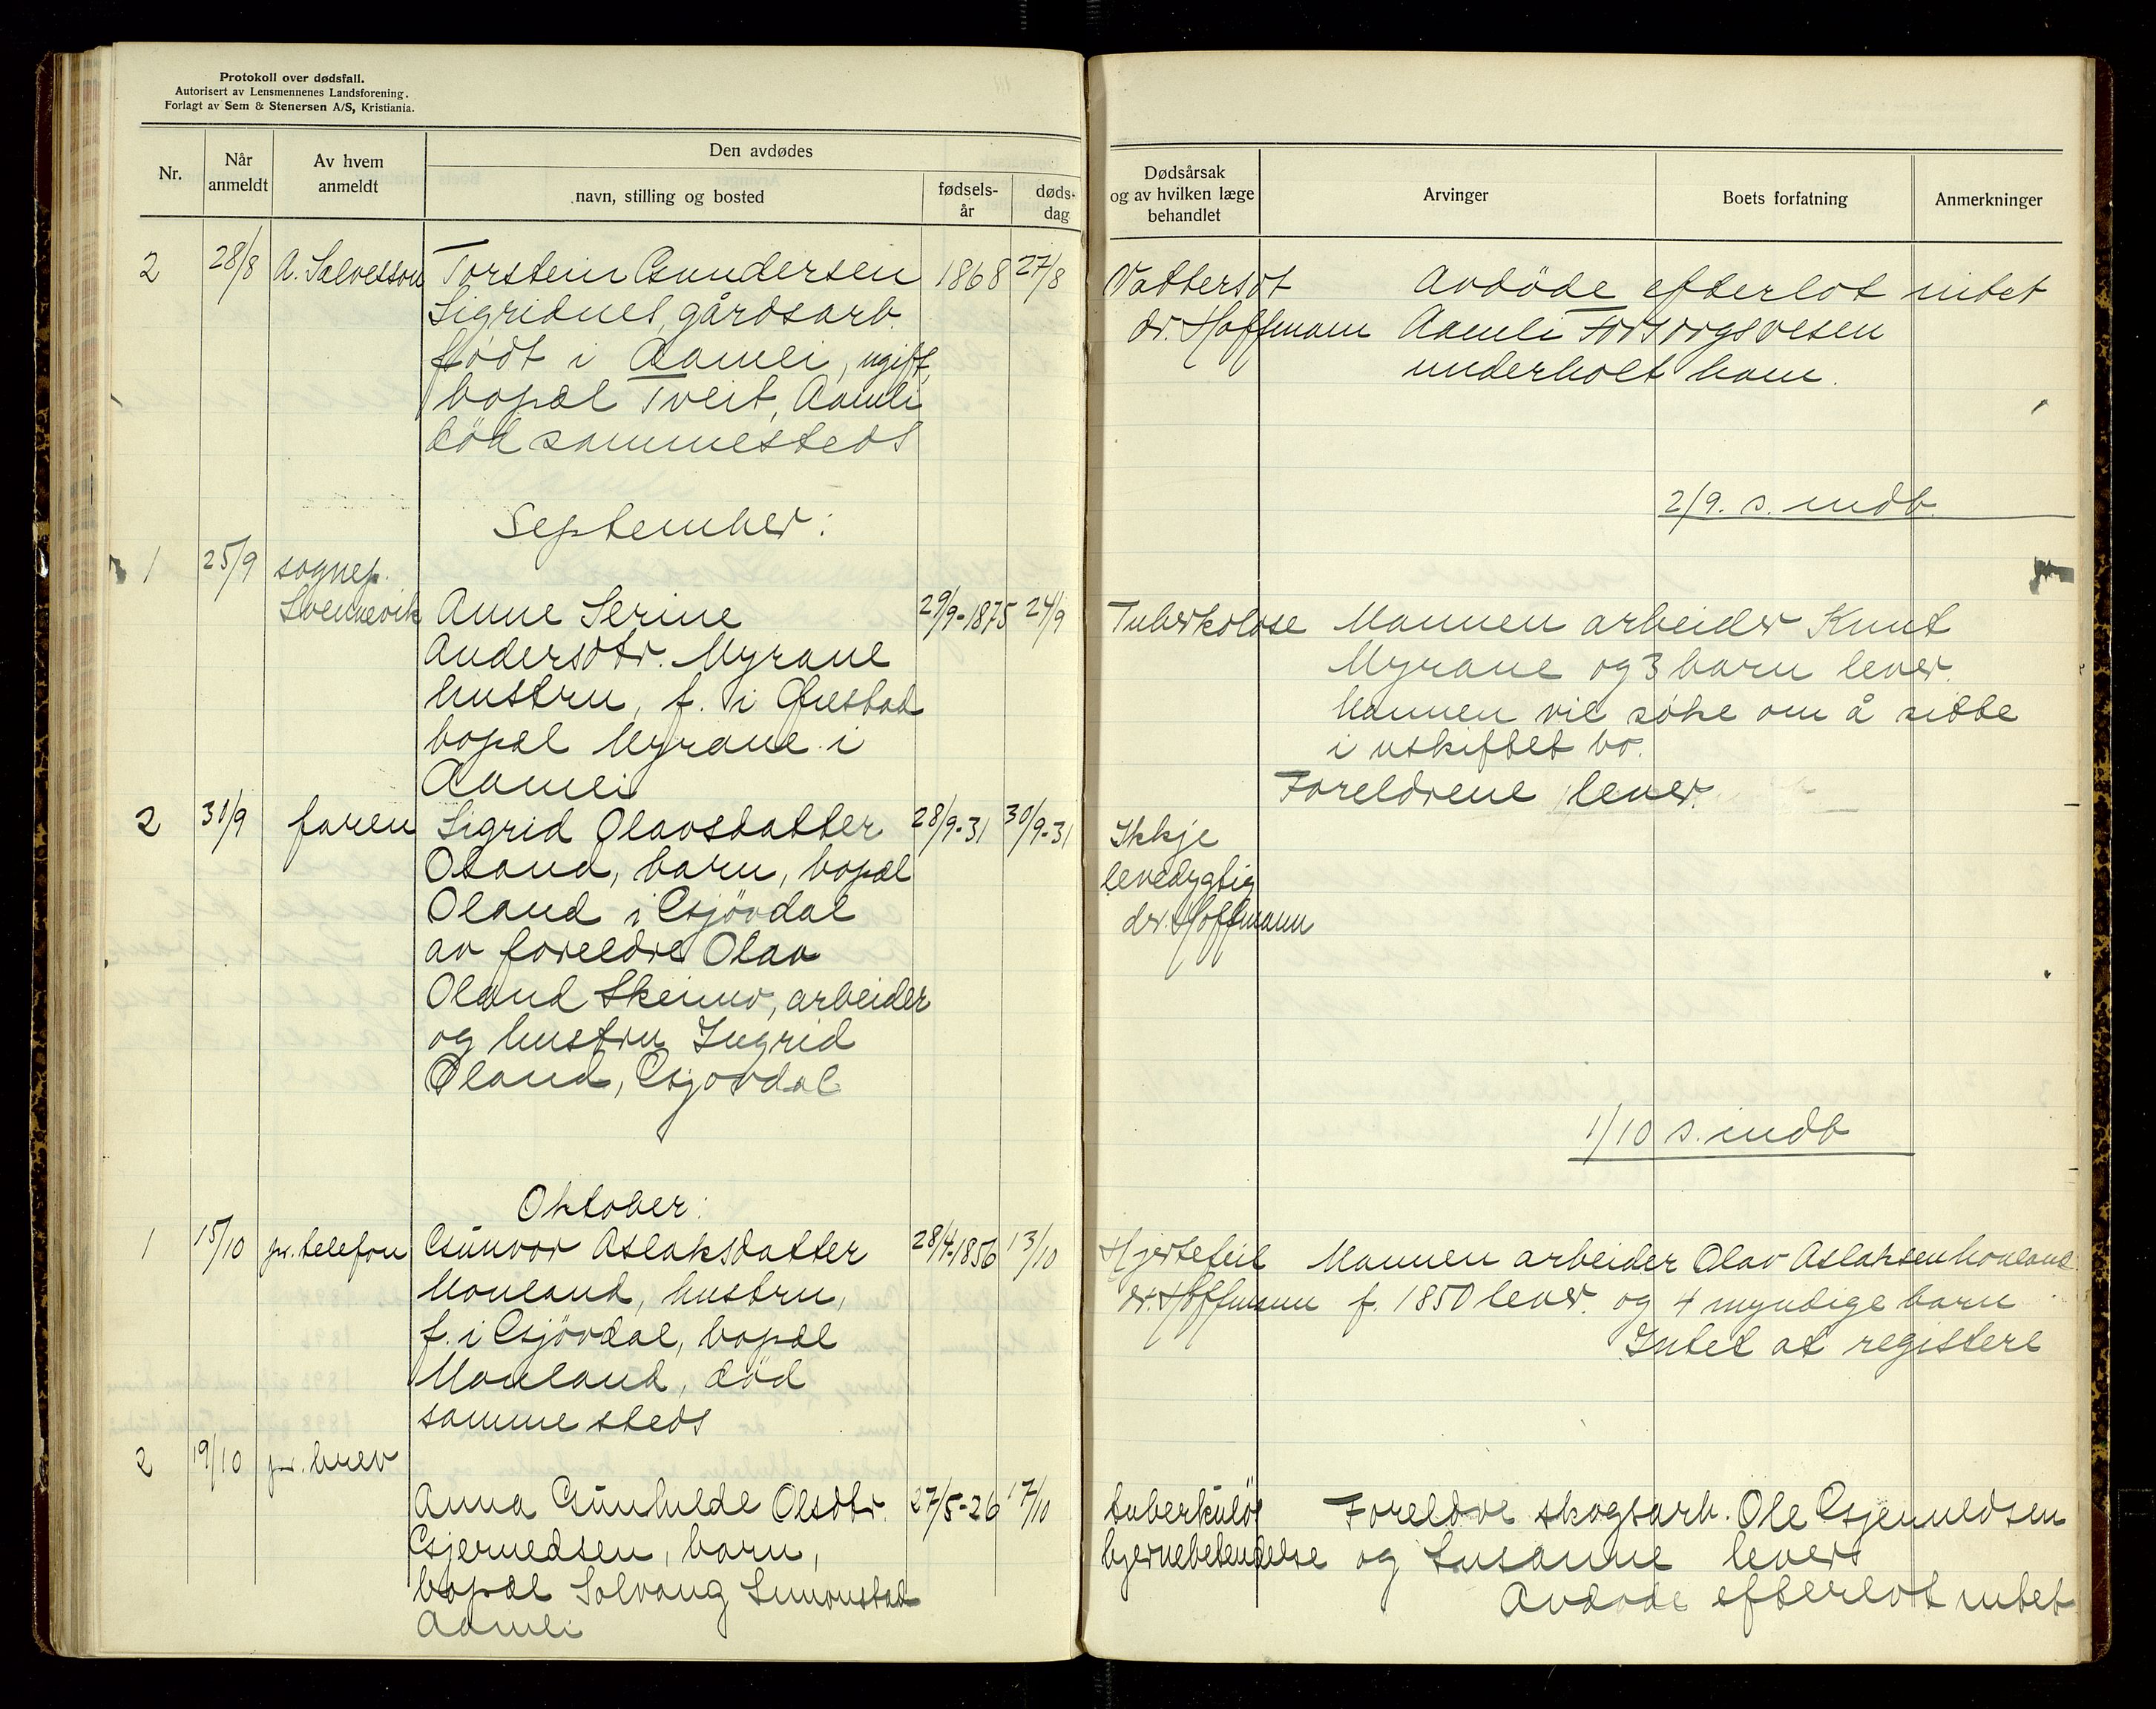 Protokoll over dødsfall.
Autorisert av Lensmennenes Landsforening.
Forlagt av Sem & Stenersen A/S, Kristiania.
Nr.
Når anmeldt
Av hvem anmeldt
Den avdødes
navn, stilling og bosted
fødsels-år
døds-dag
Dødsårsak og av hvilken læge behandlet
Arvinger
Boets forfatning
Anmerkninger
2 28/8 A. Salvesson Torstein Gundersen 1868 27/8
Sigridnes, gårdsarb.
født i Aamli, ugift,
bopæl Tveit, Aamli
död sammesteds
Vattersot Avdöde efterlot intet
dr. Hoffmann Aamli Forsorgsvesen
underholt ham.
2/9. s. indb.
September:
1 25/9 sognep.
Svennevik Anne Serine 29/9-1875 24/9
Andersdtr. Myrane
hustru, f. i Gjæstad
bopæl Myrane i
Aamli
Tuberkolose Mannen arbeider Knut
Myrane og 3 barn lever.
Mannen vil søke om å sitte
i uskiftet bo.
2 30/9 faren Sigrid Olavsdatter 28/9-31 30/9-31
Öland, barn, bopæl
Öland i Gjövdal
av foreldre Olav
Öland Skeimo, arbeider
og hustru Ingrid
Öland, Gjövdal
Foreldrene lever
Ikkje
levedygtig
dr. Hoffmann
1/10 s. indb
Oktober:
1 15/10 pr. telefon Gunvor Aslaksdatter 28/4-1856 13/10
Monland, hustru,
f. i Gjövdal, bopæl
Monland, död
samme steds
Hjertefeil Mannen arbeider Olav Aslaksen Monland
dr. Hoffmann f. 1850 lever. og 4 myndige barn
Intet at registere
2 19/10 pr. brev
Anna Gunhilde Olsdtr. 27/5-26 17/10
Gjernedsen, barn,
bopæl Solvang Simonstad
Aamli
tuberkuløs Foreldre skogsarb. Ole Gjennedsen
hjernebetendelse og Susanne levers
Avdøde efterlot intet